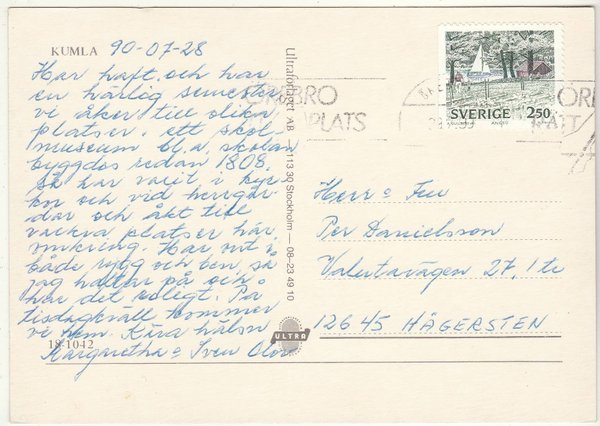 KUMLA 90-07-28
Har haft och har
en härlig semester
vi åker till olika
platser, ett skol-
museum bl.a. skolan
byggdes redan 1808.
Så har varit i kyr-
kn och vid herrgår-
dar och åkt till
vackra platser här
omkring. Har ont i
både rygg och ben, så
jag haltar på och
har det roligt. På
tisdagkväll kommer
vi hem. Kära hälsn
Margaretha o Sven Olov
18-1042
Ultraförlaget AB
113 30 Stockholm — 08-23 49 10
ULTRA
SVERIGE 250
ÖREBRO
PLATS
ÖR
RÄTT
Herr o Fru
Per Danielsson
Valutavägen 27, 1tr
126 45 HÄGERSTEN